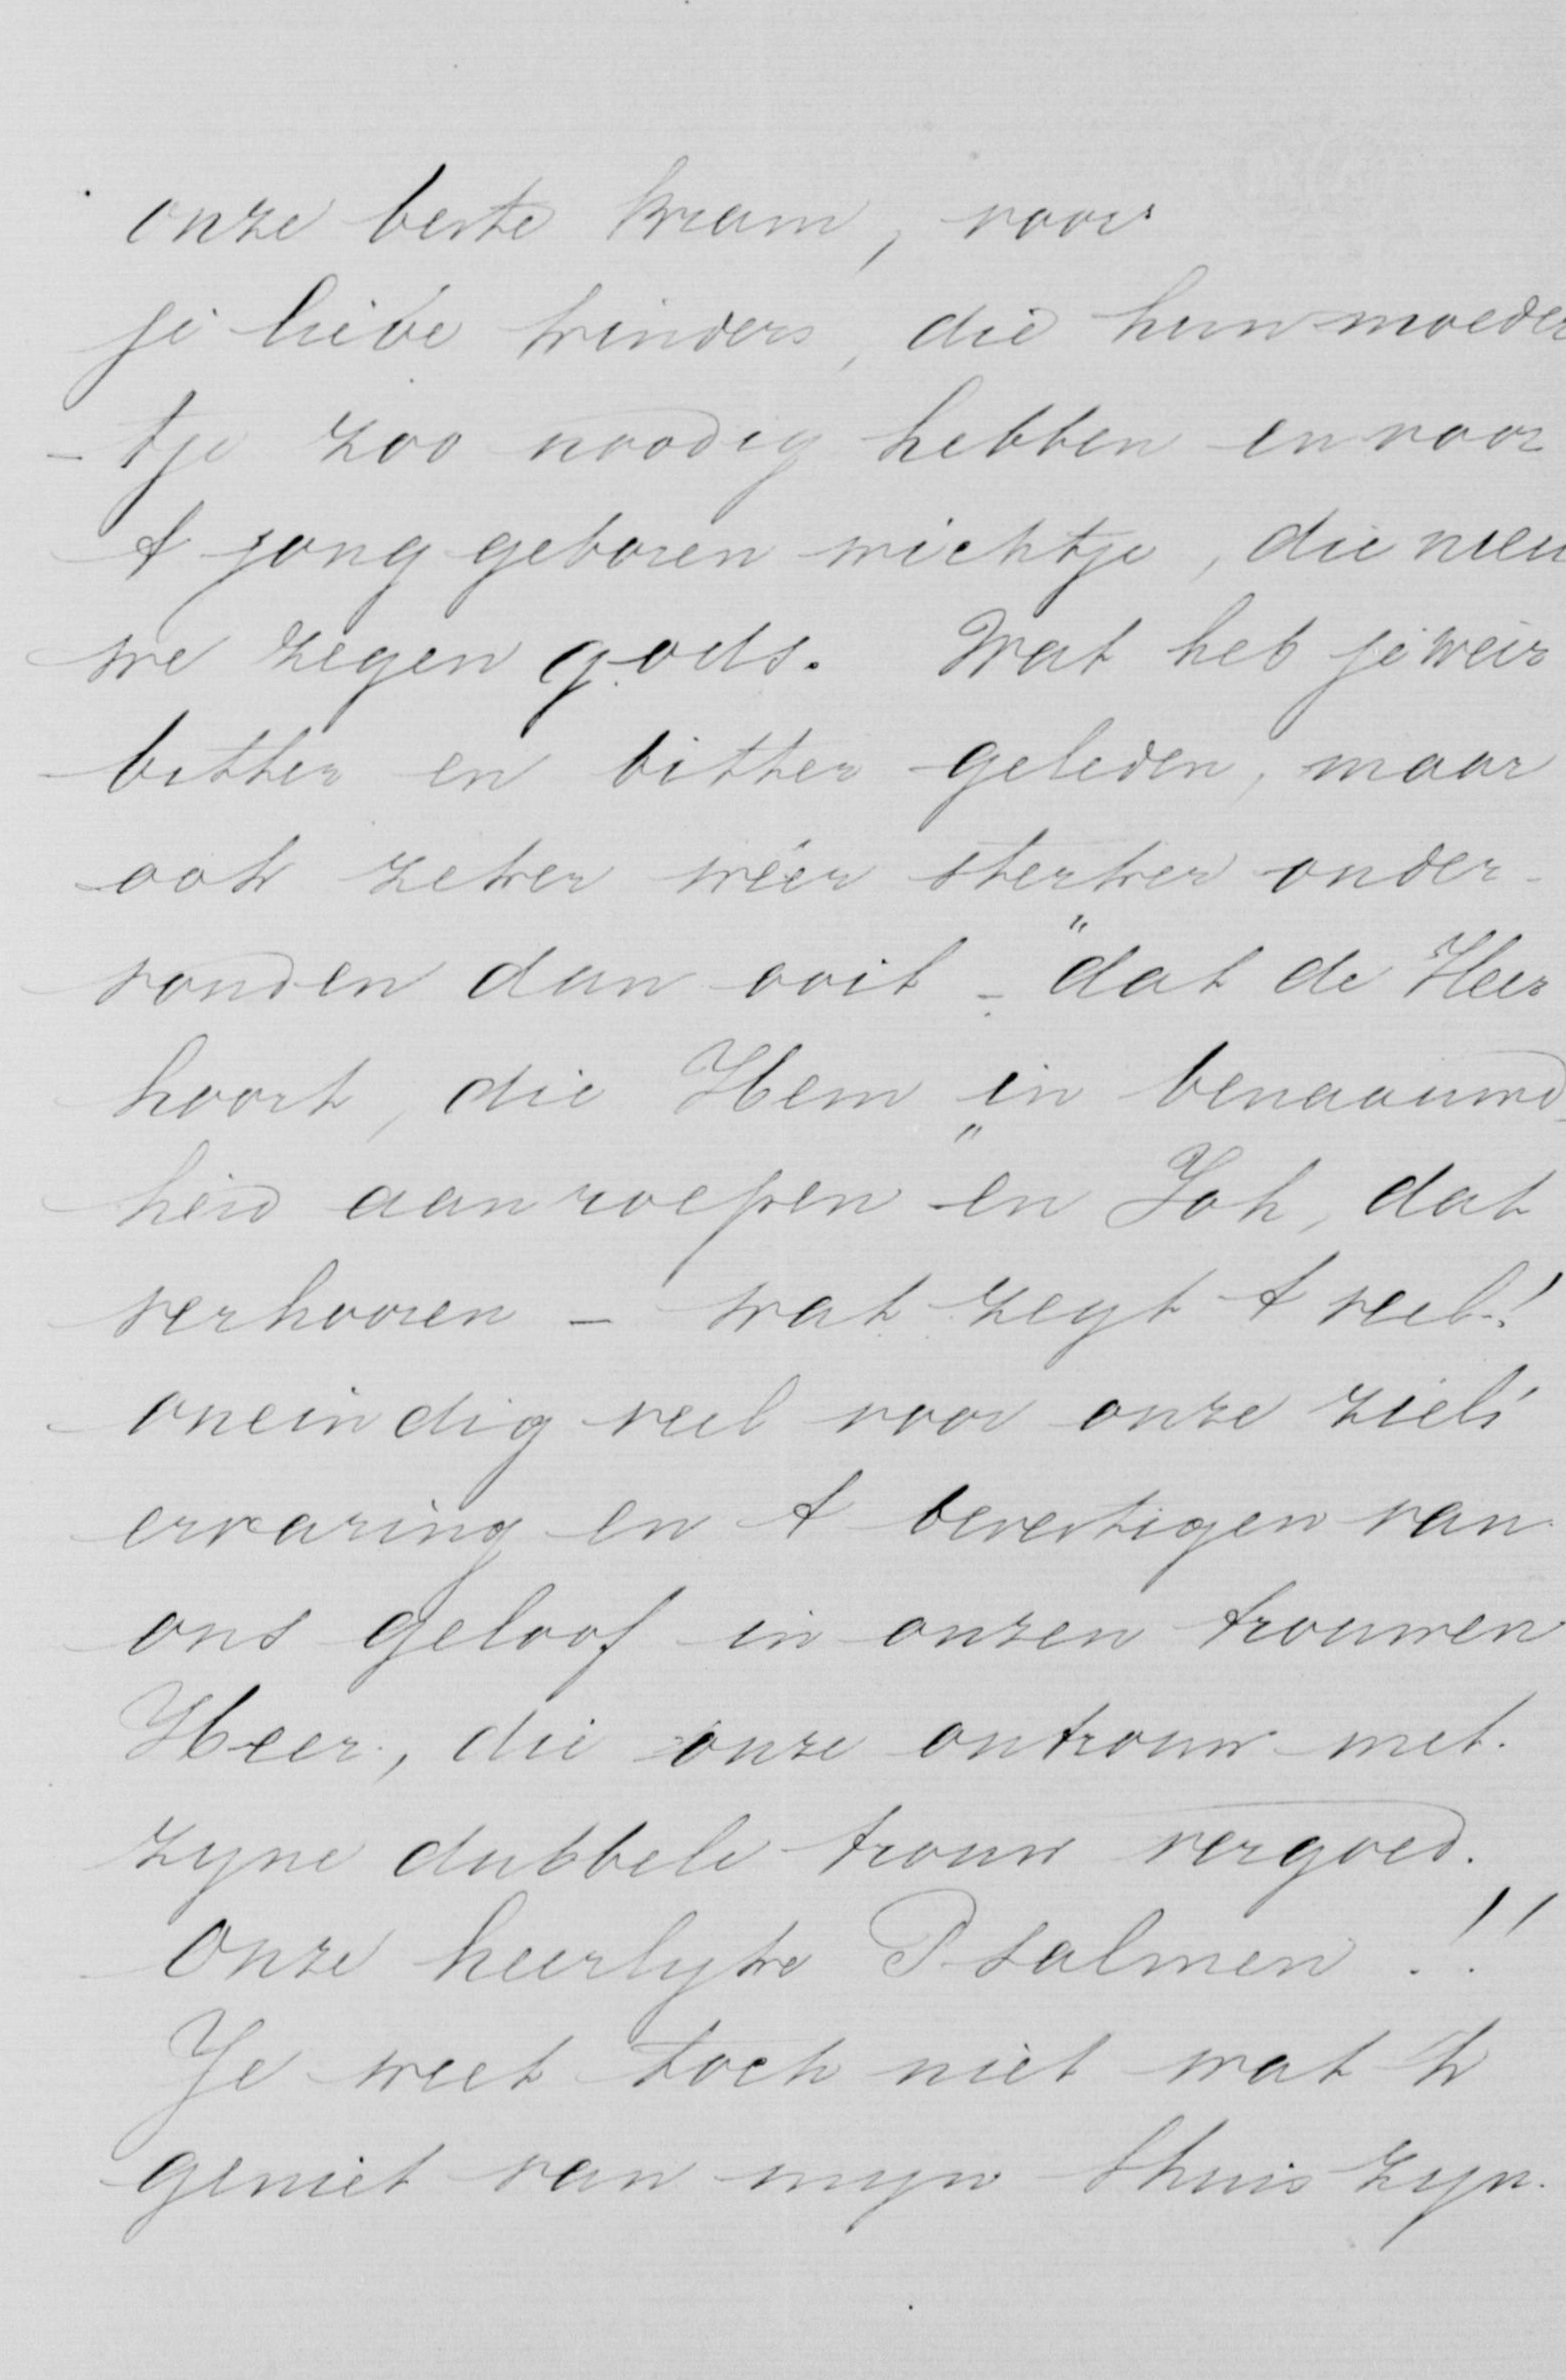 onze beste Bram, voor
je lieve kinders, die hun moeder
- tje zoo noodig hebben en voor
t jong geboren wichtje, die nieu
we zegen gods. Wat heb je weer
bitter en bitter geleden, maar
ook zeker wéér sterker onder-
vonden dan ooit - "dat de Heer
hoort, die Hem in benaauwd
heid aanroepen" en Joh, dat
verhooren - wat zegt t veel!
oneindig veel voor onze ziels'
ervaring en t bevestigen van
ons geloof in onzen trouwen
Heer, die onze ontrouw met
zyne dubbele trouw vergoed.
Onze heerlyke Psalmen!!
Je weet toch niet wat k
geniet van myn thuis zyn.